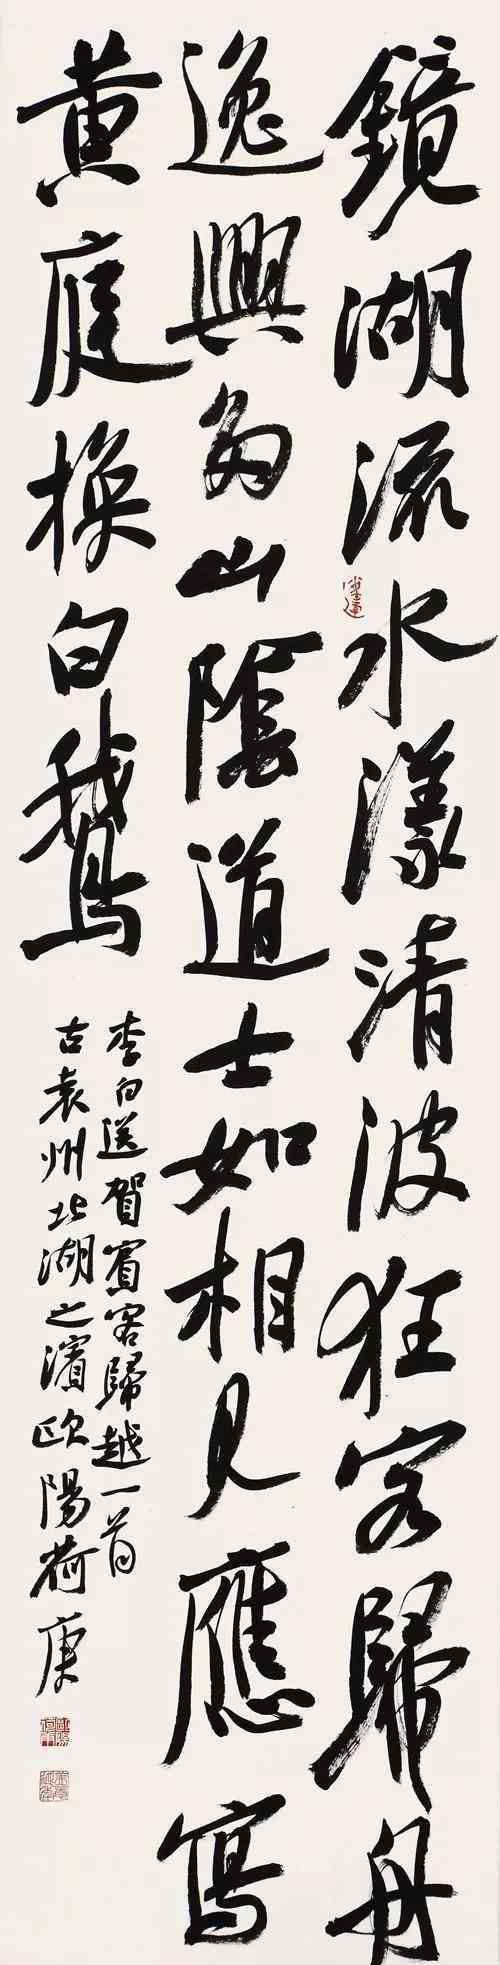 鏡湖流水漾清波狂客歸舟
逸興多山陰道士如相見應寫
黄庭換白鵝
李白送賀賓客歸越一首
古袁州北湖之濱歐陽荷庚